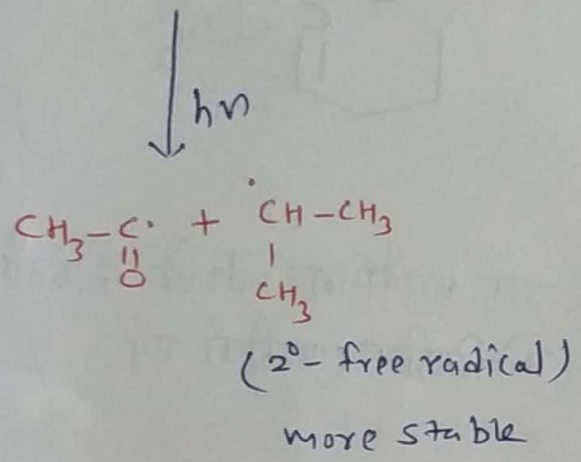 hν
CH₃-C· + ·CH-CH₃
||
O
|
CH₃
(2°- free radical)
more stable